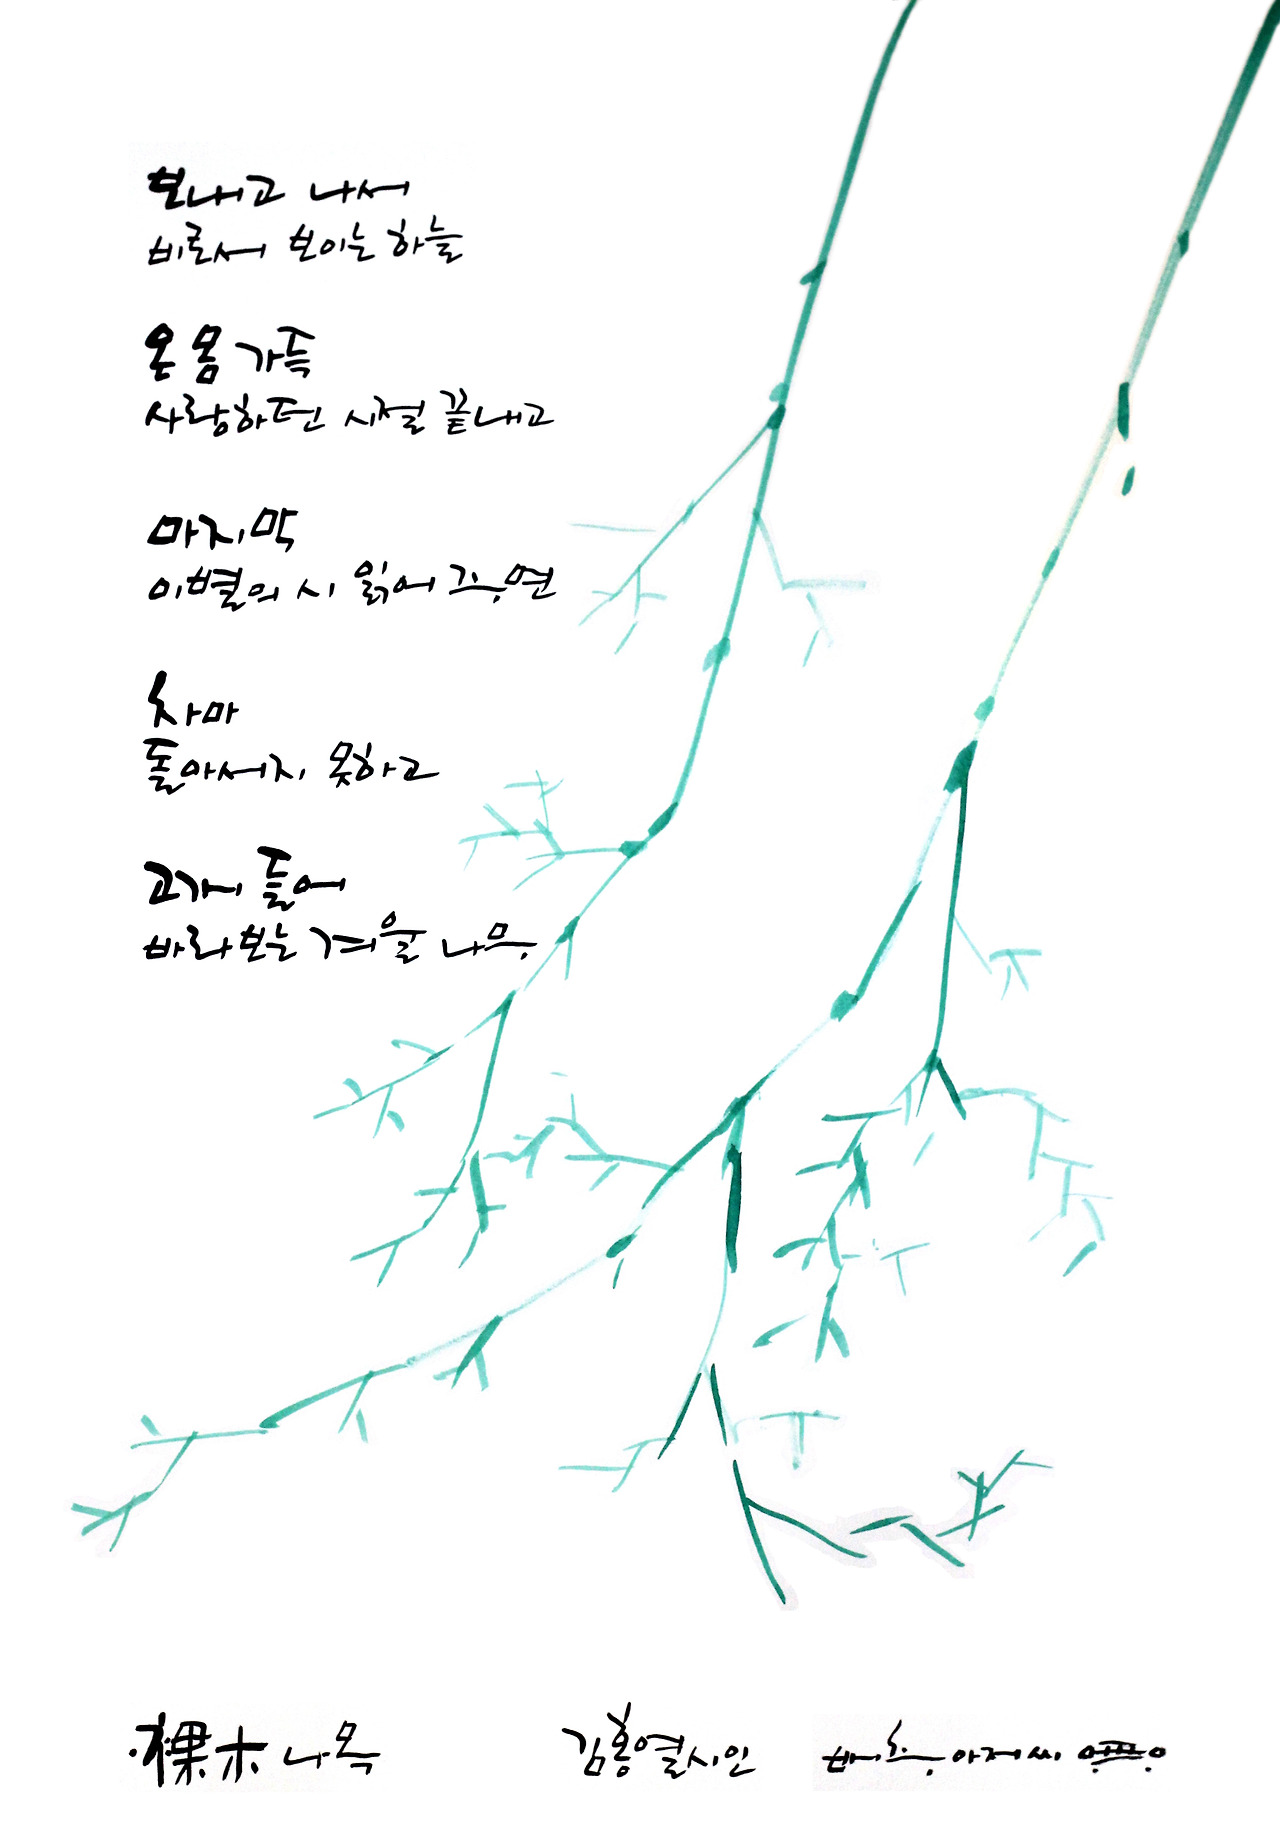 보내고 나서
비로서 보이는 하늘
온 몸 가득
사랑하던 시절 끝내고
마지막
이별의 시 읽어 주면
차마
돌아서지 못하고
고개 들어
바라보는 겨울 나무
裸木 나목
김홍열시인
배추 아저씨